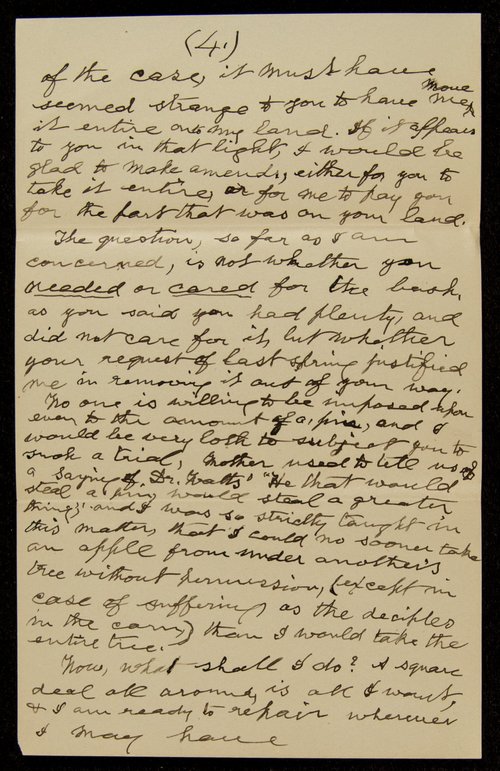 (4.)
of the case, it must have
seemed strange to you to have me move
it entire onto my land. If it appears
to you in that light, I would be
glad to make amends, either for you to
take it entire, or for me to pay you
for the part that was on your land.
The question, so far as I am
concerned, is not whether you
needed or cared for the bush,
as you said you had plenty, and
did not care for it, but whether
your request of last spring justified
me in removing it out of your way.
No one is willing to be imposed upon
even to the amount of a pin, and I
would be very loth to subject you to
such a trial, Mother used to tell us
a saying of Dr. Watts' "He that would
steal a pin, would steal a greater
thing", and I was so strictly taught in
this matter, that I could no sooner take
an apple from under another's
tree without permission, (except in
case of suffering, as the deciples
in the corn,) than I would take the
entire tree.
Now, what shall I do? A square
deal all around, is all I want,
& I am ready to repair wherever
I may have